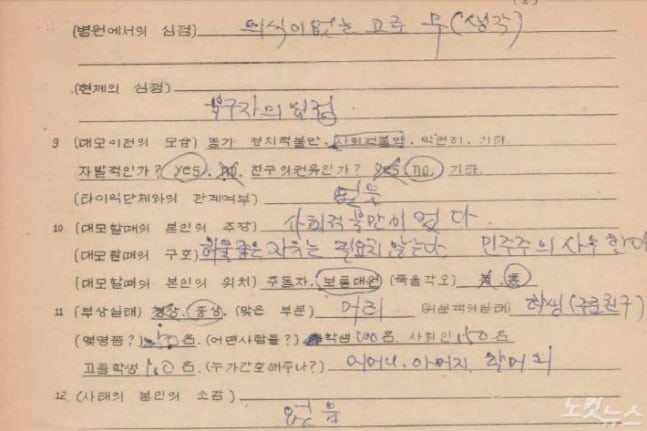 (병원에서의 심정) 의식이 없는 고로 무(생각)
(현재의 심정)
불구자의 심정
9 (대모이전의 모습) 동기 정치적불만. 사회적불만. 막연히. 기타.
자발적인가? yes. no. 친구의권유인가? yes. no. 기타.
(타이익단체와의 관계여부) 없음
10. (대모할때의 본인의 주장) 사회적 불만이 있다.
(대모할때의 구호) 허울좋은 자유는 필요치 않는다. 민주주의 사수한다
(대모할때의 본인의 위치) 주동자. 보통대원 (죽을각오)
11 (부상실태) 경상. 중상. (맞은 부문) 머리 (위문객의실태) 학생 (주로친구)
(몇명쯤?) 명. (어떤사람들?) 학생 100명. 사회인 150명
고등학생 명. (누가간호해주나?) 어머니. 아버지. 할머니
12. (사태의 본인의 소감)
없음
노컷뉴스